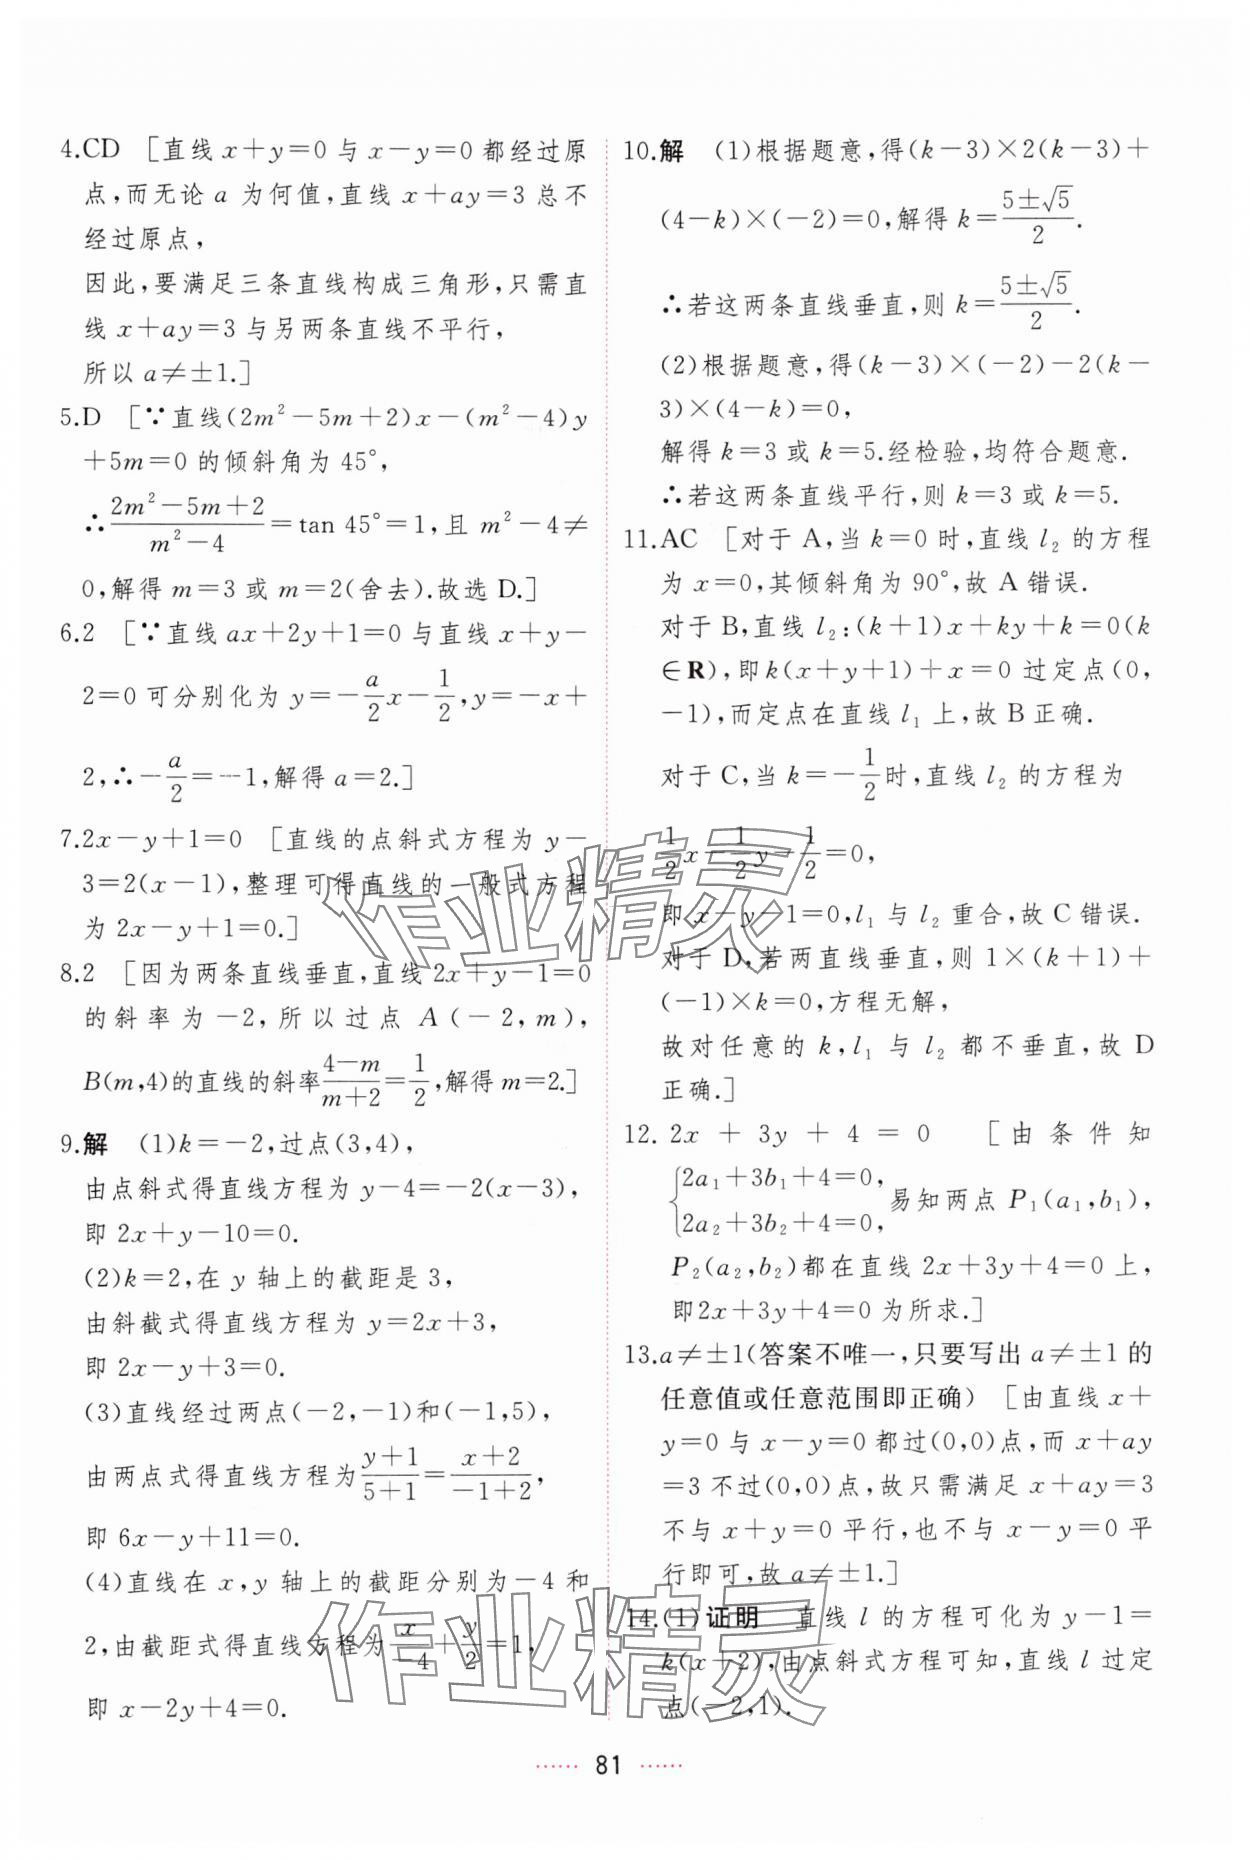 4.CD [直线 x+y=0 与 x-y=0 都经过原
点,而无论 a 为何值,直线 x+ay=3 总不
经过原点,
因此,要满足三条直线构成三角形,只需直
线 x+ay=3 与另两条直线不平行,
所以 a≠±1.]
5.D [∵直线(2m²-5m+2)x-(m²-4)y
+5m=0 的倾斜角为 45°,
∴(2m²-5m+2)/(m²-4)=tan 45°=1,且 m²-4≠
0,解得 m=3 或 m=2(舍去).故选 D.]
6.2 [∵直线 ax+2y+1=0 与直线 x+y-
2=0 可分别化为 y=-a/2x-1/2,y=-x+
2,∴-a/2=-1,解得 a=2.]
7.2x-y+1=0 [直线的点斜式方程为 y-
3=2(x-1),整理可得直线的一般式方程
为 2x-y+1=0.]
8.2 [因为两条直线垂直,直线 2x+y-1=0
的斜率为-2,所以过点 A(-2,m),
B(m,4)的直线的斜率(4-m)/(m+2)=1/2,解得 m=2.]
9.解 (1)k=-2,过点(3,4),
由点斜式得直线方程为 y-4=-2(x-3),
即 2x+y-10=0.
(2)k=2,在 y 轴上的截距是 3,
由斜截式得直线方程为 y=2x+3,
即 2x-y+3=0.
(3)直线经过两点(-2,-1)和(-1,5),
由两点式得直线方程为(y+1)/(5+1)=(x+2)/(-1+2),
即 6x-y+11=0.
(4)直线在 x,y 轴上的截距分别为-4 和
2,由截距式得直线方程为x/(-4)+y/2=1,
即 x-2y+4=0.
10.解 (1)根据题意,得(k-3)×2(k-3)+
(4-k)×(-2)=0,解得 k=(5±√5)/2.
∴若这两条直线垂直,则 k=(5±√5)/2.
(2)根据题意,得(k-3)×(-2)-2(k-
3)×(4-k)=0,
解得 k=3 或 k=5.经检验,均符合题意.
∴若这两条直线平行,则 k=3 或 k=5.
11.AC [对于 A,当 k=0 时,直线 l₂ 的方程
为 x=0,其倾斜角为 90°,故 A 错误.
对于 B,直线 l₂:(k+1)x+ky+k=0(k
∈R),即 k(x+y+1)+x=0 过定点(0,
-1),而定点在直线 l₁ 上,故 B 正确.
对于 C,当 k=-1/2时,直线 l₂ 的方程为
1/2x-1/2y-1/2=0,
即 x-y-1=0,l₁ 与 l₂ 重合,故 C 错误.
对于 D,若两直线垂直,则 1×(k+1)+
(-1)×k=0,方程无解,
故对任意的 k,l₁ 与 l₂ 都不垂直,故 D
正确.]
12. 2x+3y+4=0 [由条件知
{2a₁+3b₁+4=0,
2a₂+3b₂+4=0, 易知两点 P₁(a₁,b₁),
P₂(a₂,b₂)都在直线 2x+3y+4=0 上,
即2x+3y+4=0 为所求.]
13.a≠±1(答案不唯一,只要写出 a≠±1 的
任意值或任意范围即正确) [由直线 x+
y=0 与 x-y=0 都过(0,0)点,而 x+ay
=3 不过(0,0)点,故只需满足 x+ay=3
不与 x+y=0 平行,也不与 x-y=0 平
行即可,故 a≠±1.]
14.(1)证明 直线 l 的方程可化为 y-1=
k(x+2),由点斜式方程可知,直线 l 过定
点(-2,1).
作业精灵
作业精灵
…… 81 ……